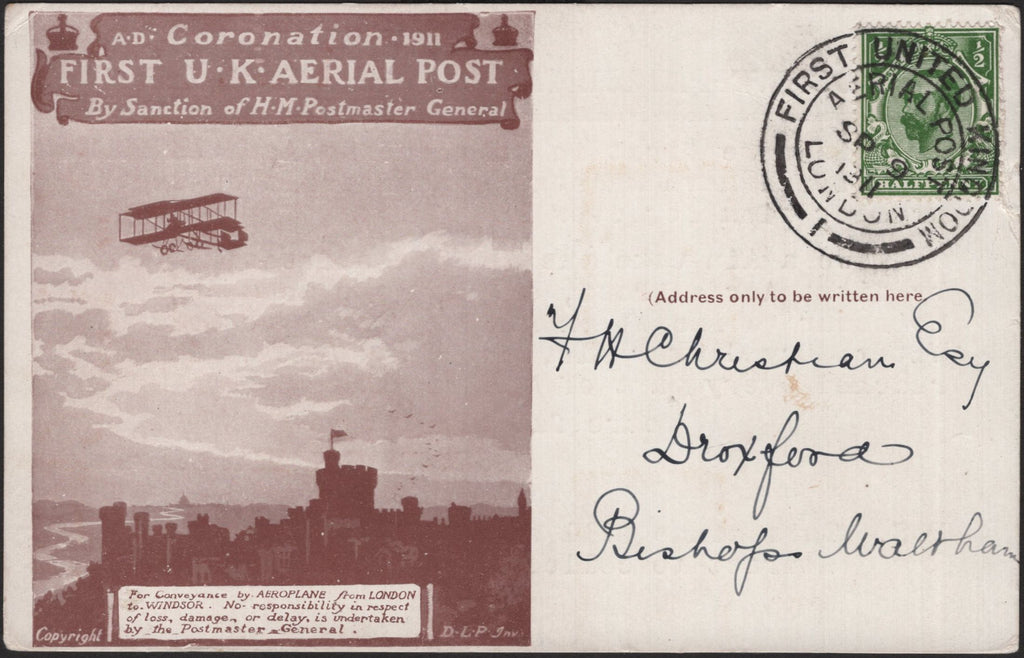 A·D· Coronation · 1911
FIRST U·K·AERIAL POST
By Sanction of H·M·Postmaster General
For Conveyance by AEROPLANE from LONDON
to WINDSOR. No responsibility in respect
of loss, damage, or delay, is undertaken
by the Postmaster General.
Copyright
D·L·P·Inv.
FIRST UNITED KINGDOM
AERIAL POST
SP 9
1911
LONDON
1
½
HALFPENNY
(Address only to be written here
F H Christian Esq
Droxford
Bishops Waltham